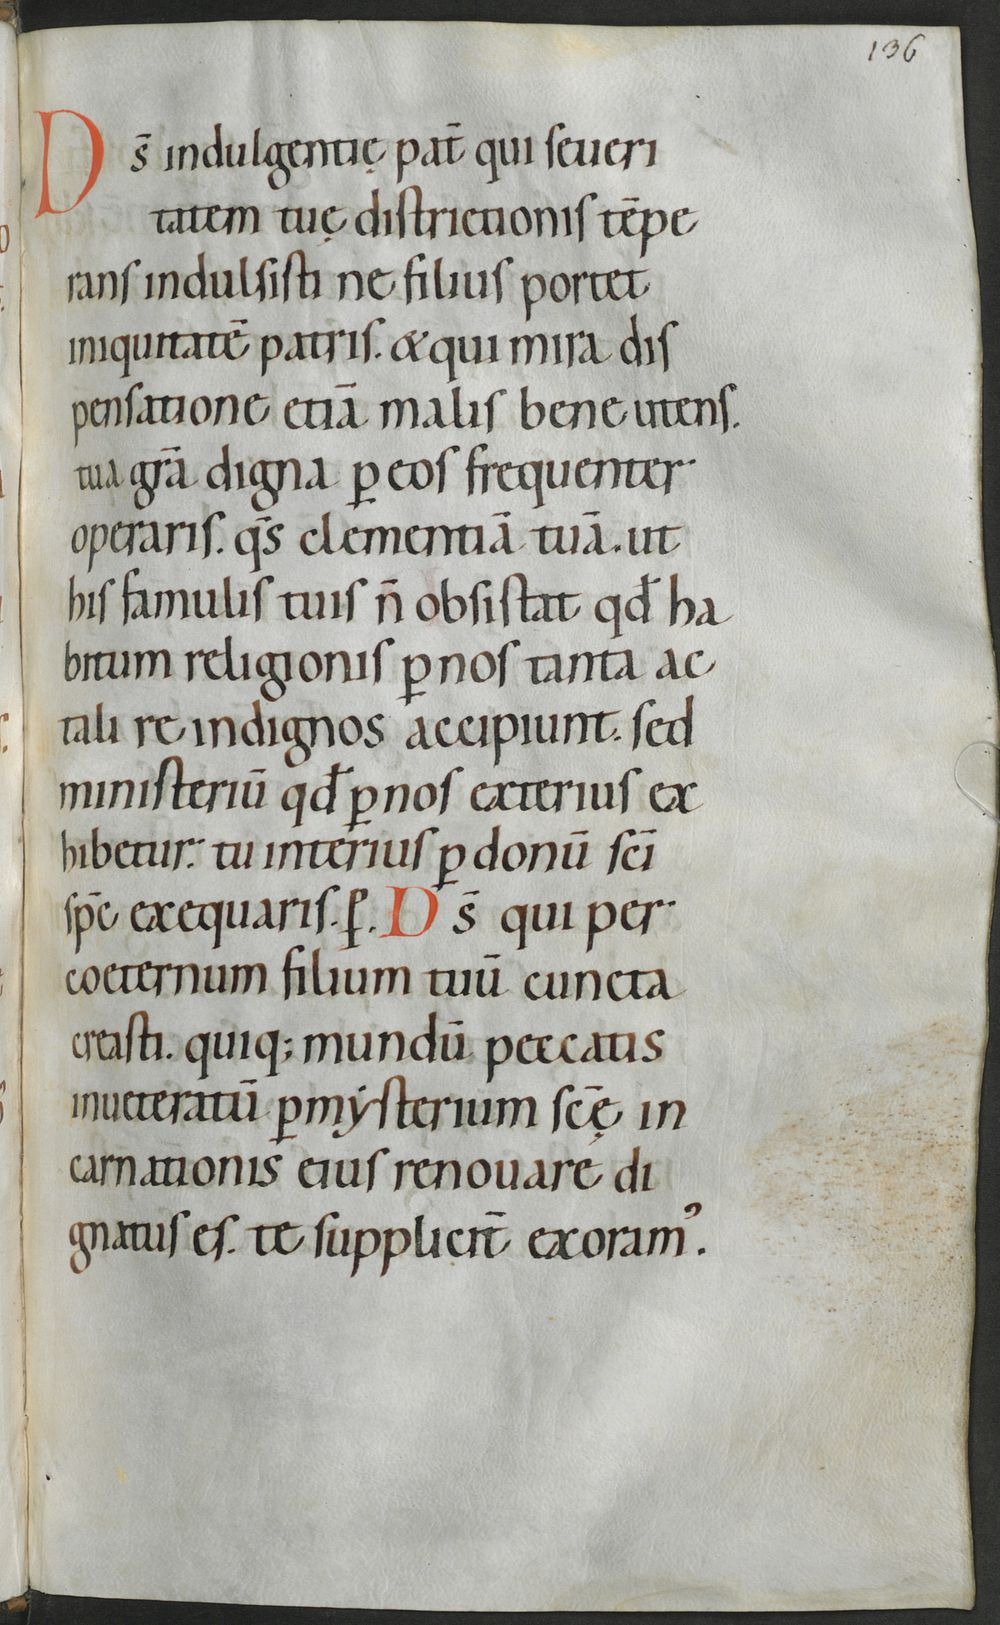 136
Ds̄ indulgentię pat̄ qui seueri
tatem tuę districtionis tēpe
rans indulsisti ne filius portet
iniquitatē patris. & qui mira dis
pensatione etiā malis bene utens.
tua grā digna ꝑ eos frequenter
operaris. qs̄ clementiā tuā. ut
his famulis tuis n̄ obsistat qđ ha
bitum religionis ꝑ nos tanta ac
tali re indignos accipiunt. sed
ministeriū qđ ꝑ nos exterius ex
hibetur. tu interius ꝑ donū sc̄i
sp̄c exequaris. ꝑ. Ds̄ qui per
coeternum filium tuū cuncta
creasti. quiq; mundū peccatis
inueteratū ꝑ mẏsterium sc̄ę in
carnationis eius renouare di
gnatus es. te supplicit̄ exoram᾽.